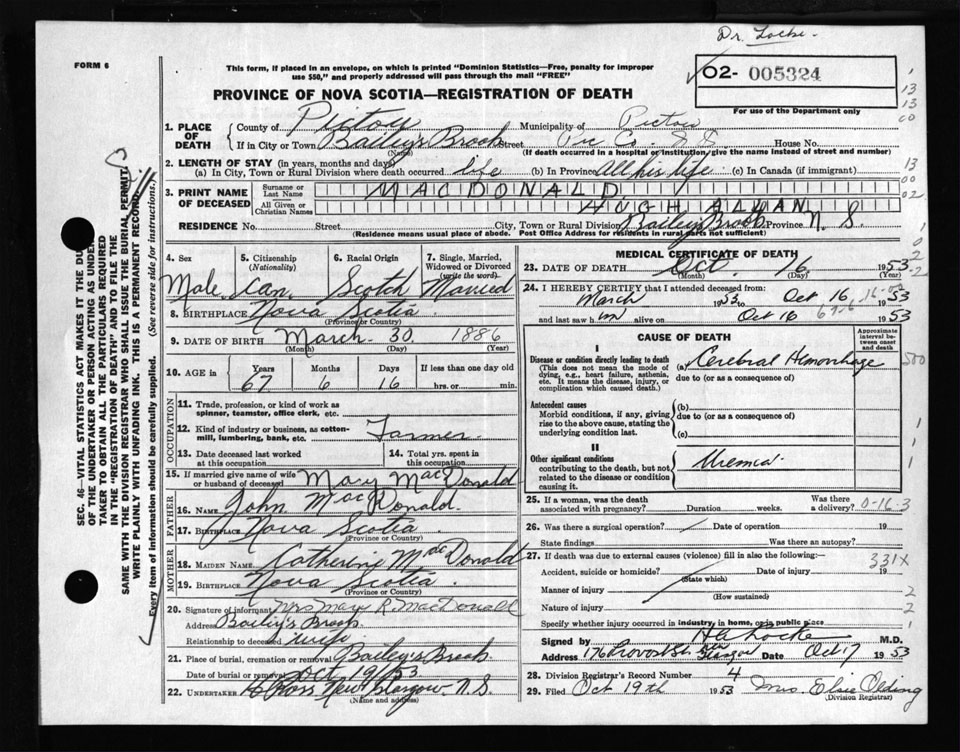 Dr. Locke.
FORM 6
This form, if placed in an envelope, on which is printed "Dominion Statistics—Free, penalty for improper
use $50," and properly addressed will pass through the mail "FREE"
O2- 005324
PROVINCE OF NOVA SCOTIA—REGISTRATION OF DEATH
For use of the Department only
1. PLACE OF DEATH County of Pictou Municipality of Pictou
If in City or Town Bailey's Brook Street House No.
(Name) (If death occurred in a hospital or institution, give the name instead of street and number)
2. LENGTH OF STAY (in years, months and days)
(a) In City, Town or Rural Division where death occurred life (b) In Province All his life (c) In Canada (if immigrant)
3. PRINT NAME OF DECEASED Surname or Last Name MACDONALD
All Given or Christian Names HUGH ALLAN
RESIDENCE No. Street City, Town or Rural Division Bailey's Brook Province N. S.
(Residence means usual place of abode. Post Office Address for residents in rural parts not sufficient)
4. Sex 5. Citizenship (Nationality) 6. Racial Origin 7. Single, Married, Widowed or Divorced (write the word)
Male Can. Scotch Married
8. BIRTHPLACE Nova Scotia
(Province or Country)
9. DATE OF BIRTH March 30 1886
(Month) (Day) (Year)
10. AGE Years Months Days If less than one day old
67 6 16 hrs. or min.
OCCUPATION
11. Trade, profession or kind of work as spinner, teamster, office clerk, etc.
12. Kind of industry or business, as cotton-mill, lumbering, bank, etc. Farmer
13. Date deceased last worked at this occupation 14. Total yrs. spent in this occupation
15. If married give name of wife or husband of deceased Mary MacDonald
FATHER
16. NAME John MacDonald.
17. BIRTHPLACE Nova Scotia
(Province or Country)
MOTHER
18. MAIDEN NAME Catherine MacDonald
19. BIRTHPLACE Nova Scotia
(Province or Country)
20. Signature of informant Mrs Mary R. MacDonald
Address Bailey's Brook
Relationship to deceased wife
21. Place of burial, cremation or removal Bailey's Brook
Date of burial or removal Oct 19/53
22. UNDERTAKER New Glasgow N.S.
(Name and address)
MEDICAL CERTIFICATE OF DEATH
23. DATE OF DEATH Oct. 16 1953
(Month) (Day)
24. I HEREBY CERTIFY that I attended deceased from:
March 1953 to Oct 16 1953
and last saw him alive on Oct 16 1953
CAUSE OF DEATH
Approximate interval between onset and death
I
Disease or condition directly leading to death
(This does not mean the mode of dying, e.g., heart failure, asthenia, etc. It means the disease, injury, or complication which caused death.)
(a) Cerebral Hemorrhage
due to (or as a consequence of)
Antecedent causes
Morbid conditions, if any, giving rise to the above cause, stating the underlying condition last.
(b)
due to (or as a consequence of)
(c)
II
Other significant conditions
contributing to the death, but not related to the disease or condition causing it.
Uremia
25. If a woman, was the death associated with pregnancy? Duration weeks. Was there a delivery? 0-16-3
26. Was there a surgical operation? Date of operation 19
State findings Was there an autopsy?
27. If death was due to external causes (violence) fill in also the following:—
Accident, suicide or homicide? Date of injury 19
(State which)
331X
Manner of injury
(How sustained)
Nature of injury
Specify whether injury occurred in industry, in home, or in public place
Signed by H A Locke M.D.
Address 176 Provost St. New Glasgow Date Oct 17 1953
28. Division Registrar's Record Number 4
29. Filed Oct 19th 1953 Mrs. Elsie Olding
(Division Registrar)
SEC. 46—VITAL STATISTICS ACT MAKES IT THE DUTY
OF THE UNDERTAKER OR PERSON ACTING AS UNDERTAKER
TO OBTAIN ALL THE PARTICULARS REQUIRED
IN THE "REGISTRATION OF DEATH" AND TO FILE THE
SAME WITH THE DIVISION REGISTRAR WHO SHALL ISSUE THE BURIAL PERMIT.
WRITE PLAINLY WITH UNFADING INK. THIS IS A PERMANENT RECORD.
Every item of information should be carefully supplied. (See reverse side for instructions.)